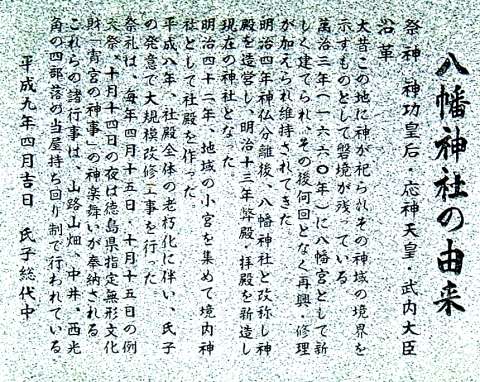 八幡神社の由来
祭神 神功皇后・応神天皇・武内大臣
沿革
大昔この地に神が祀られその神域の境界を
示すものとして磐境が残っている
萬治三年（一六六〇年）に八幡宮として新
しく建てられ、その後何回となく再興・修理
が加えられ維持されてきた
明治四年神仏分離後、八幡神社と改称し神
殿を造営し、明治十三年幣殿、拝殿を新造し
現在の神社となった
明治四十二年、地域の小宮を集めて境内神
社として社殿を作った
平成八年、社殿全体の老朽化に伴い、氏子
の発意で大規模改修工事を行った
祭礼は、毎年四月十五日、十月十五日の例
大祭、十月十四日の夜は徳島県指定無形文化
財「青宮の神事」の神楽舞いが奉納される
これらの諸行事は、山路山畑、中井、西光
角の四部落の当屋持ち回り制で行われている
平成九年四月吉日 氏子総代中